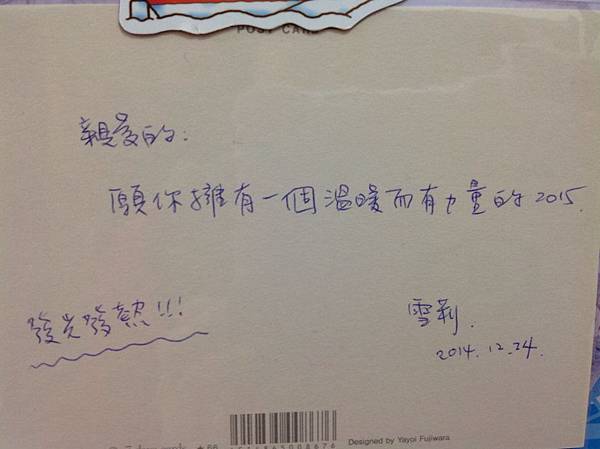 POST CARD
親愛的:
願你擁有一個溫暖而有力量的2015.
發光發熱!!!
雪莉.
2014.12.24.
Designed by Yayoi Fujiwara